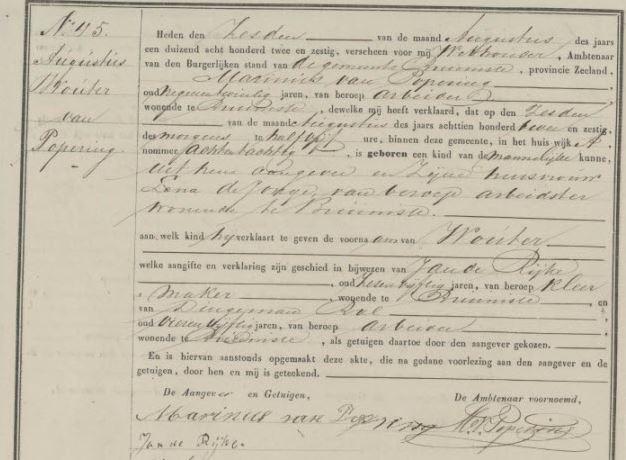 No 45.
Augustus
Wouter
van
Popering.
Heden den Zesden van de maand Augustus des jaars
een duizend acht honderd twee en zestig, verscheen voor mij Wethouder, Ambtenaar
van den Burgerlijken stand van de gemeente Bruinisse, provincie Zeeland,
Marinus van Popering
oud negenentwintig jaren, van beroep arbeider
wonende te Bruinisse, dewelke mij heeft verklaard, dat op den Zesden
van de maand Augustus des jaars achttien honderd twee en zestig,
des morgens te half vijf ure, binnen deze gemeente, in het huis wijk A.
nommer achtentachtig, is geboren een kind van de mannelijke kunne,
uit hem aangever en zijne huisvrouw
Lena de Jonge, van beroep arbeidster
wonende te Bruinisse.
aan welk kind hij verklaart te geven de voornaam van Wouter
welke aangifte en verklaring zijn geschied in bijwezen van Jan de Rijke
, oud zesenvijftig jaren, van beroep kleer
maker, wonende te Bruinisse, en
van Dingeman Bal
oud vierenvijftig jaren, van beroep arbeider
wonende te Bruinisse, als getuigen daartoe door den aangever gekozen.
En is hiervan aanstonds opgemaakt deze akte, die na gedane voorlezing aan den aangever en de
getuigen, door hen en mij is geteekend.
De Aangever en Getuigen, De Ambtenaar voornoemd,
Marinus van Popering
Jan de Rijke.